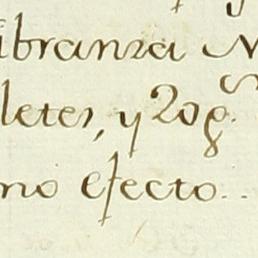 ibranza
letes, y
no efecto..